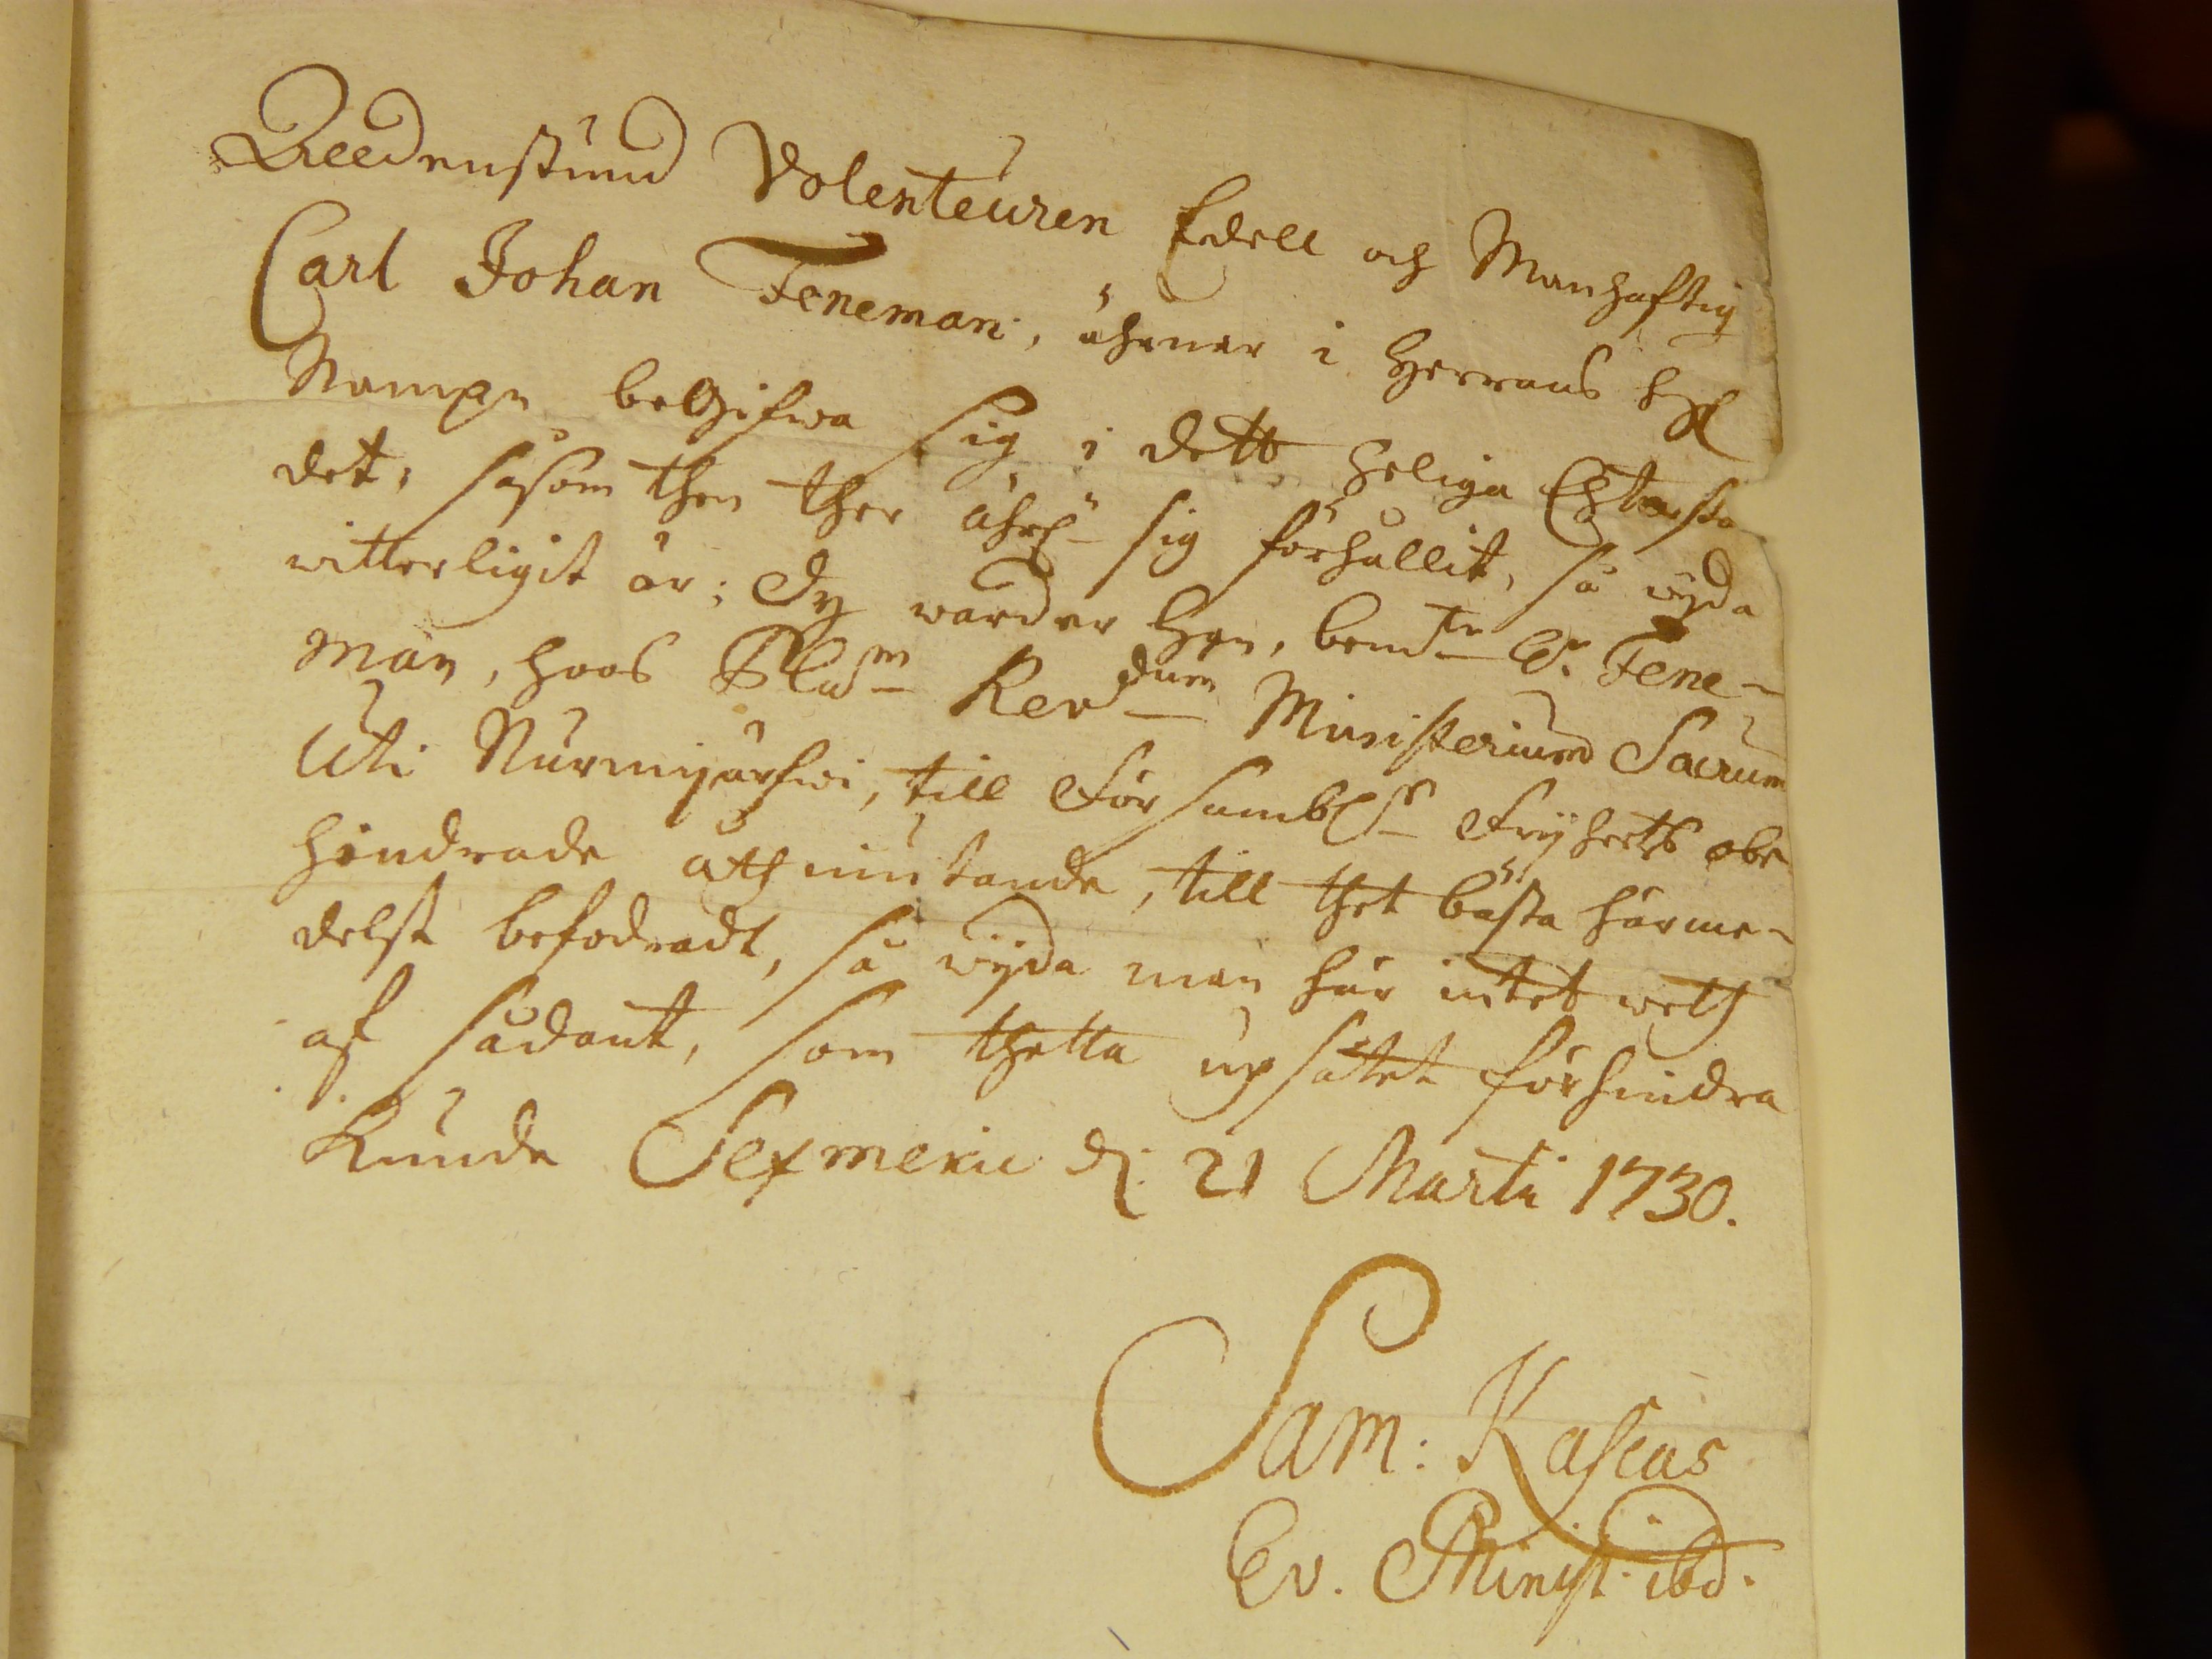 Alldenstund Volenteuren Edell och Manhaftig
Carl Johan Feneman, ährnar i Herrans hgl
Nampn beGifwa sig i dett heliga Echtersta
det, såsom then ther ährl. sig förhållit, så wijda
witterligit är; Ty warder Hgn, bemte Sr. Fene-
man, hoos Rdum Ministerium Sacrum
Uti Nurmijärfwi, till Försambl. Frijheets obe
hindrade åthniutande, till thet bästa härme-
delst befodradt, så wijda man här intet weth
af sådant, som thetta upsåtet förhindra
Kunde Sexmeric d: 21 Martii 1730.
Sam: Kascas
Ev. Minist. ibd.